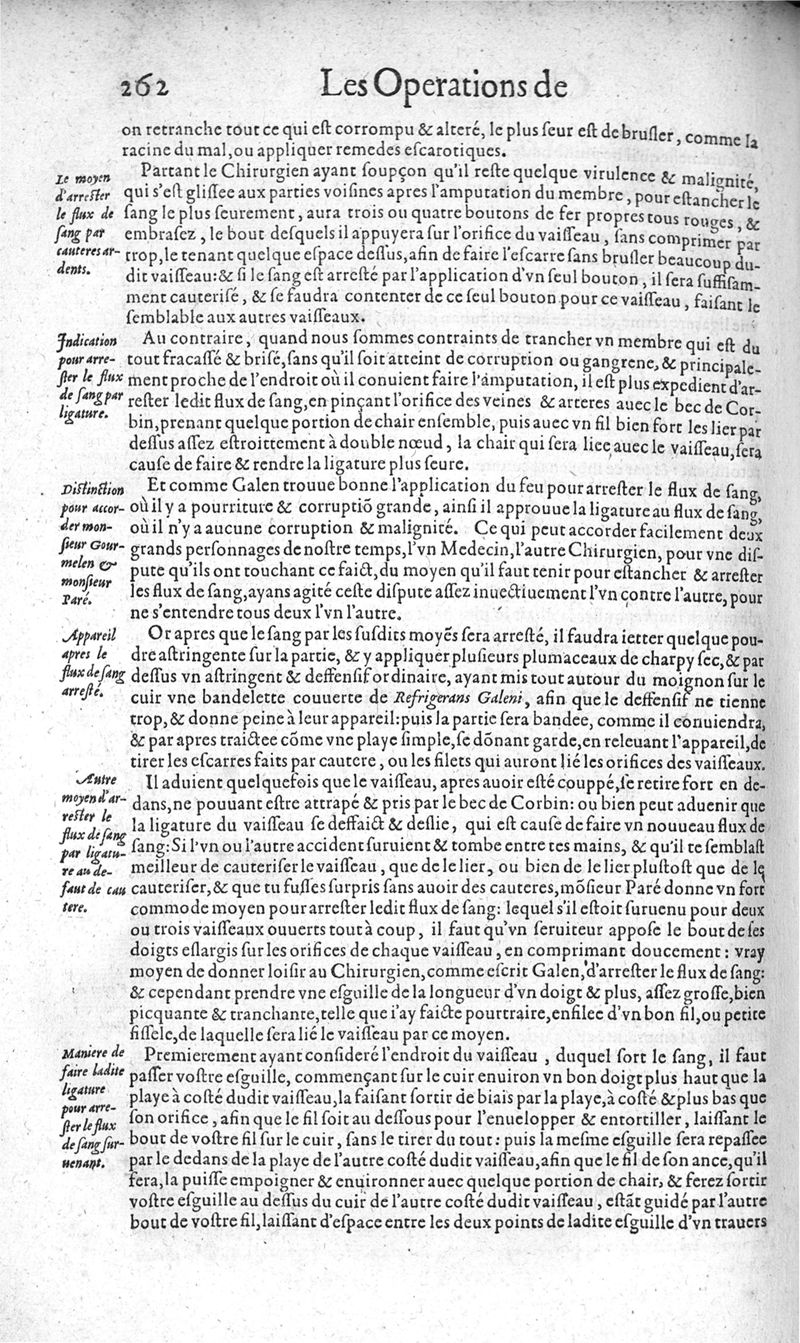 262
Les Operations de
on retranche tout ce qui eſt corrompu & alteré, le plus ſeur eſt de bruſler, comme la
racine du mal, ou appliquer remedes eſcarotiques.
Le moyen
d'arreſter
le flux de
ſang par
cauteres ar-
dents.
Partant le Chirurgien ayant ſoupçon qu'il reſte quelque virulence & malignité,
qui s'eſt gliſſee aux parties voiſines apres l'amputation du membre, pour eſtancher le
ſang le plus ſeurement, aura trois ou quatre boutons de fer propres tous rouges, &
embraſez, le bout deſquels il appuyera ſur l'orifice du vaiſſeau, ſans comprimer par
trop, le tenant quelque eſpace deſſus, afin de faire l'eſcarre ſans bruſler beaucoup du-
dit vaiſſeau: & ſi le ſang eſt arreſté par l'application d'vn ſeul bouton, il ſera ſuffiſam-
ment cauteriſé, & ſe faudra contenter de ce ſeul bouton pour ce vaiſſeau, faiſant le
ſemblable aux autres vaiſſeaux.
Indication
pour arre-
ſter le flux
de ſang par
ligature.
Au contraire, quand nous ſommes contraints de trancher vn membre qui eſt du
tout fracaſſé & briſé, ſans qu'il ſoit atteint de corruption ou gangrene, & principale-
ment proche de l'endroit où il conuient faire l'amputation, il eſt plus expedient d'ar-
reſter ledit flux de ſang, en pinçant l'orifice des veines & arteres auec le bec de Cor-
bin, prenant quelque portion de chair enſemble, puis auec vn fil bien fort les lier par
deſſus aſſez eſtroittement à double nœud, la chair qui ſera liee auec le vaiſſeau, ſera
cauſe de faire & rendre la ligature plus ſeure.
Diſtinction
pour accor-
der mon-
ſieur Gour-
melen &
monſieur
Paré.
Et comme Galen trouue bonne l'application du feu pour arreſter le flux de ſang,
où il y a pourriture & corruptiõ grande, ainſi il approuue la ligature au flux de ſang,
où il n'y a aucune corruption & malignité. Ce qui peut accorder facilement deux
grands perſonnages de noſtre temps, l'vn Medecin, l'autre Chirurgien, pour vne diſ-
pute qu'ils ont touchant ce faict, du moyen qu'il faut tenir pour eſtancher & arreſter
les flux de ſang, ayans agité ceſte diſpute aſſez inuectiuement l'vn contre l'autre, pour
ne s'entendre tous deux l'vn l'autre.
Appareil
apres le
flux de ſang
arreſté.
Or apres que le ſang par les ſuſdits moyẽs ſera arreſté, il faudra ietter quelque pou-
dre aſtringente ſur la partie, & y appliquer pluſieurs plumaceaux de charpy ſec, & par
deſſus vn aſtringent & deffenſif ordinaire, ayant mis tout autour du moignon ſur le
cuir vne bandelette couuerte de Refrigerans Galeni, afin que le deffenſif ne tienne
trop, & donne peine à leur appareil: puis la partie ſera bandee, comme il conuiendra,
& par apres traictee cõme vne playe ſimple, ſe dõnant garde, en releuant l'appareil, de
tirer les eſcarres faits par cautere, ou les filets qui auront lié les orifices des vaiſſeaux.
Autre
moyen d'ar-
reſter le
flux de ſang
par ligatu-
re au de-
faut de cau
tere.
Il aduient quelquefois que le vaiſſeau, apres auoir eſté couppé, ſe retire fort en de-
dans, ne pouuant eſtre attrapé & pris par le bec de Corbin: ou bien peut aduenir que
la ligature du vaiſſeau ſe deffaict & deſlie, qui eſt cauſe de faire vn nouueau flux de
ſang: Si l'vn ou l'autre accident ſuruient & tombe entre tes mains, & qu'il te ſemblaſt
meilleur de cauteriſer le vaiſſeau, que de le lier, ou bien de le lier pluſtoſt que de le
cauteriſer, & que tu fuſſes ſurpris ſans auoir des cauteres, mõſieur Paré donne vn fort
commode moyen pour arreſter ledit flux de ſang: lequel s'il eſtoit ſuruenu pour deux
ou trois vaiſſeaux ouuerts tout à coup, il faut qu'vn ſeruiteur appoſe le bout de ſes
doigts eſlargis ſur les orifices de chaque vaiſſeau, en comprimant doucement: vray
moyen de donner loiſir au Chirurgien, comme eſcrit Galen, d'arreſter le flux de ſang:
& cependant prendre vne eſguille de la longueur d'vn doigt & plus, aſſez groſſe, bien
picquante & tranchante, telle que i'ay faicte pourtraire, enfilee d'vn bon fil, ou petite
fiſſele, de laquelle ſera lié le vaiſſeau par ce moyen.
Maniere de
faire ladite
ligature
pour arre-
ſter le flux
de ſang ſur-
uenant.
Premierement ayant conſideré l'endroit du vaiſſeau, duquel ſort le ſang, il faut
paſſer voſtre eſguille, commençant ſur le cuir enuiron vn bon doigt plus haut que la
playe à coſté dudit vaiſſeau, la faiſant ſortir de biais par la playe, à coſté & plus bas que
ſon orifice, afin que le fil ſoit au deſſous pour l'enuelopper & entortiller, laiſſant le
bout de voſtre fil ſur le cuir, ſans le tirer du tout: puis la meſme eſguille ſera repaſſee
par le dedans de la playe de l'autre coſté dudit vaiſſeau, afin que le fil de ſon ance, qu'il
fera, la puiſſe empoigner & enuironner auec quelque portion de chair, & ferez ſortir
voſtre eſguille au deſſus du cuir de l'autre coſté dudit vaiſſeau, eſtãt guidé par l'autre
bout de voſtre fil, laiſſant d'eſpace entre les deux points de ladite eſguille d'vn trauers